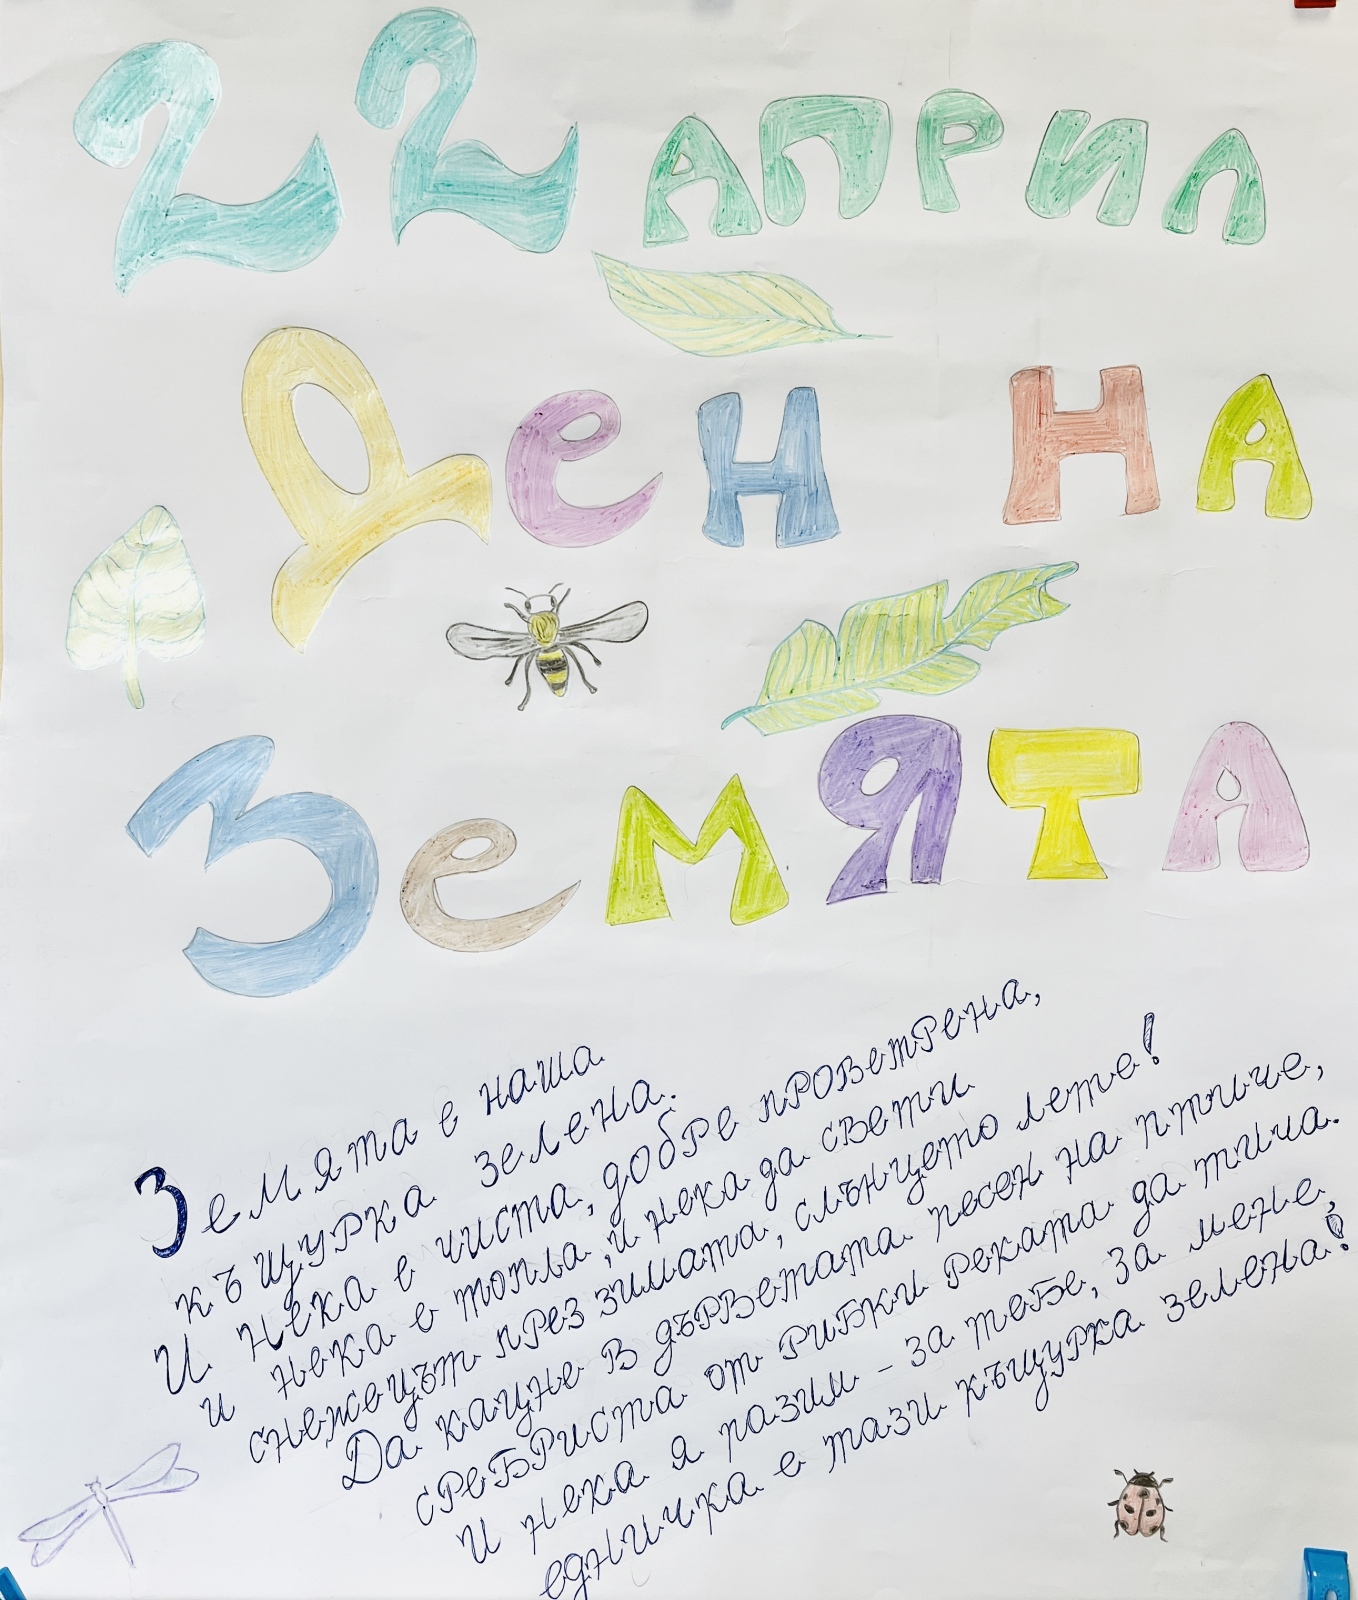 22 април
Ден на
Земята
Земята е наша
къщурка зелена.
И нека е чиста, добре проветрена,
и нека е топла, и нека да свети
снежецът през зимата, слънцето лете!
Да кацне в дърветата песен на птиче,
сребриста от рибки реката да тича.
И нека я пазим - за тебе, за мене,
едничка е тази къщурка зелена!